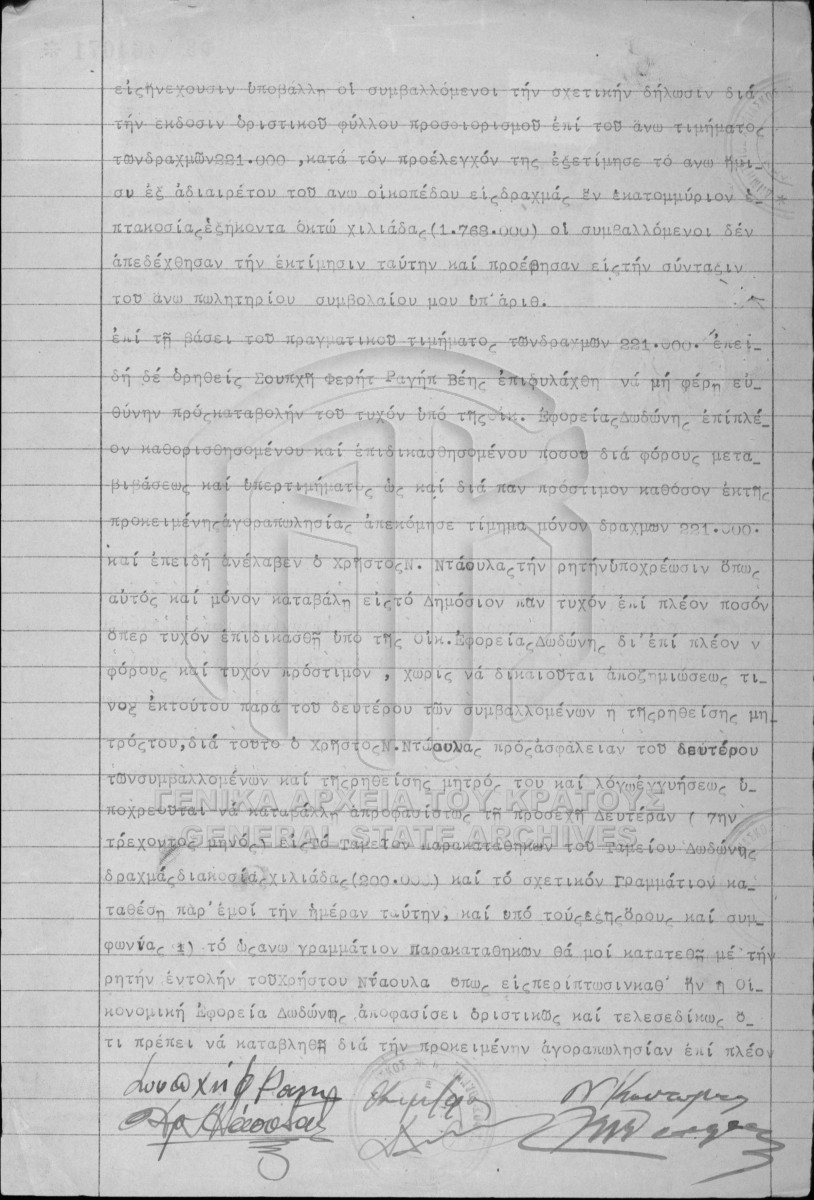 εἰςἥνεχουσιν ὑποβάλλῃ οἱ συμβαλλόμενοι τήν σχετικήν δήλωσιν διά
τήν εκδοσιν ὁριστικοῦ φύλλου προσοιορισμοῦ ἐπί τοῦ ἄνω τιμήματος
τῶνδραχμῶν221.000 ,κατά τόν προέλεγχόν της ἐξετίμησε τό ανω ἥμι-
συ ἐξ ἀδιαιρέτου τοῦ ανω οἰκοπέδου εἰςδραχμάς ἕν ἑκατομμύριον ἑ-
πτακοσίαςἑξήκοντα ὀκτώ χιλιάδας(1.768.000) οἱ συμβαλλόμενοι δέν
ἀπεδέχθησαν τήν ἐκτίμησιν ταύτην καί προέβησαν εἰςτήν σύνταξιν
τοῦ ἄνω πωλητηρίου συμβολαίου μου ὑπ'ἀριθ.
ἐπί τῇ βάσει τοῦ πραγματικοῦ τιμήματος τῶνδραχμῶν 221.000. ἐπει-
δή δέ ὁρηθείς Σουπχῆ Φερήτ Ραγήπ Βέης ἐπιφυλάχθη νά μή φέρῃ εὐ-
θύνην πρόςκαταβολήν τοῦ τυχόν ὑπό τῆςοἰκ. ἘφορείαςΔωδώνης ἐπίπλέ-
ον καθορισθησομένου καί ἐπιδικασθησομένου ποσοῦ διά φόρους μετα-
βιβάσεως καί ὑπερτιμήματος ὡς καί διά παν πρόστιμον καθόσον ἐκτῆς
προκειμένηςἀγοραπωλησίας ἀπεκόμησε τίμημα μόνον δραχμῶν 221.000.
καί ἐπειδή ἀνέλαβεν ὁ ΧρῆστοςΝ. Ντάουλαςτήν ρητήνὑποχρέωσιν ὅπως
αὐτός καί μόνον καταβάλῃ εἰςτό Δημόσιον παν τυχόν ἐπί πλέον ποσόν
ὅπερ τυχόν ἐπιδικασθῇ ὑπό τῆς οἰκ.ἘφορείαςΔωδώνης δι'ἐπί πλέον ν
φόρους καί τυχόν πρόστιμον , χωρίς νά δικαιοῦται ἀποζημιώσεως τι-
νος ἐκτούτου παρά τοῦ δευτέρου τῶν συμβαλλομένων ἤ τῆςρηθείσης μη-
τρόςτου,διά τοῦτο ὁ ΧρῆστοςΝ.Ντάουλας πρόςἀσφάλειαν τοῦ δευτέρου
τῶνσυμβαλλομένων καί τῆςρηθείσης μητρός του καί λόγῳἐγγυήσεως ὑ-
ποχρεοῦται νά καταβάλλῃ ἀπροφασίστως τῇ προσεχῆ Δευτέραν ( 7ην
τρέχοντος μηνός) εἰςτό Ταμεῖον παρακαταθηκῶν τοῦ Ταμείου Δωδώνης
δραχμάςδιακοσίας χιλιάδας(200.000) καί τό σχετικόν Γραμμάτιον κα-
ταθέσῃ παρ'ἐμοί τήν ἡμέραν ταύτην, καί ὑπό τούςἑξῆςὅρους καί συμ-
φωνίας 1) τό ὡςανω γραμμάτιον παρακαταθηκῶν θά μοί κατατεθῇ μέ τήν
ρητήν ἐντολήν τοῦΧρήστου Ντάουλα ὅπως εἰςπερίπτωσινκαθ' ἥν ἡ Οἰ-
κονομική Ἐφορεία Δωδώνης ἀποφασίσει ὁριστικῶς καί τελεσεδίκως ὅ-
τι πρέπει νά καταβληθῇ διά τήν προκειμένην ἀγοραπωλησίαν ἐπί πλέον
ΓΕΝΙΚΑ ΑΡΧΕΙΑ ΤΟΥ ΚΡΑΤΟΥΣ
GENERAL STATE ARCHIVES